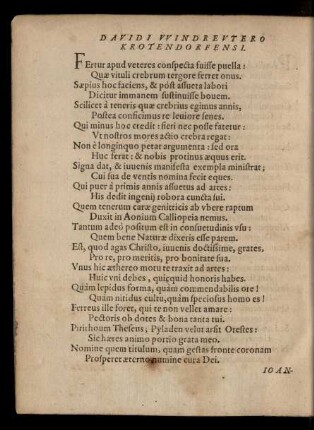 DAVIDI VVINDREVTERO
EROTENDORFENSI.
FErtur apud veteres conspecta fuisse puella:
Quæ vituli crebrum tergore ferret onus.
Sæpius hoc faciens, & póst assueta labori
Dicitur immanem sustinuisse bouem.
Scilicet à teneris quæ crebrius egimus annis,
Postea conficimus re leuiore senes.
Qui minus hoc credit: fieri nec posse fatetur:
Vt nostros mores actio crebra regat:
Non è longinquo petat argumenta: sed ora
Huc ferat: & nobis protinus æquus erit.
Signa dat, & iuuenis manifesta exempla ministrat;
Cui sua de ventis nomina fecit eques.
Qui puer á primis annis assuetus ad artes:
His dedit ingenij robora cuncta sui.
Quem tenerum caræ genitricis ab vbere raptum
Duxit in Aonium Calliopeia nemus.
Tantum adeò positum est in consuetudinis vsu:
Quem bene Naturæ dixeris esse parem.
Est, quod agas Christo, iuuenis doctissime, grates,
Pro re, pro meritis, pro bonitate sua.
Vnus hic æthereo motu te traxit ad artes:
Huic vni debes, quicquid honoris habes.
Quàm lepidus forma, quàm commendabilis ore!
Quàm nitidus cultu, quàm speciosus homo es!
Ferreus ille foret, qui te non vellet amare:
Pectoris ob dotes & bona tanta tui.
Pirithoum Theseus, Pyladen velut arsit Orestes:
Sic hæres animo portio grata meo.
Nomine quem titulum, quam gestas fronte coronam
Prosperet æterno numine cura Dei.
IOAN-